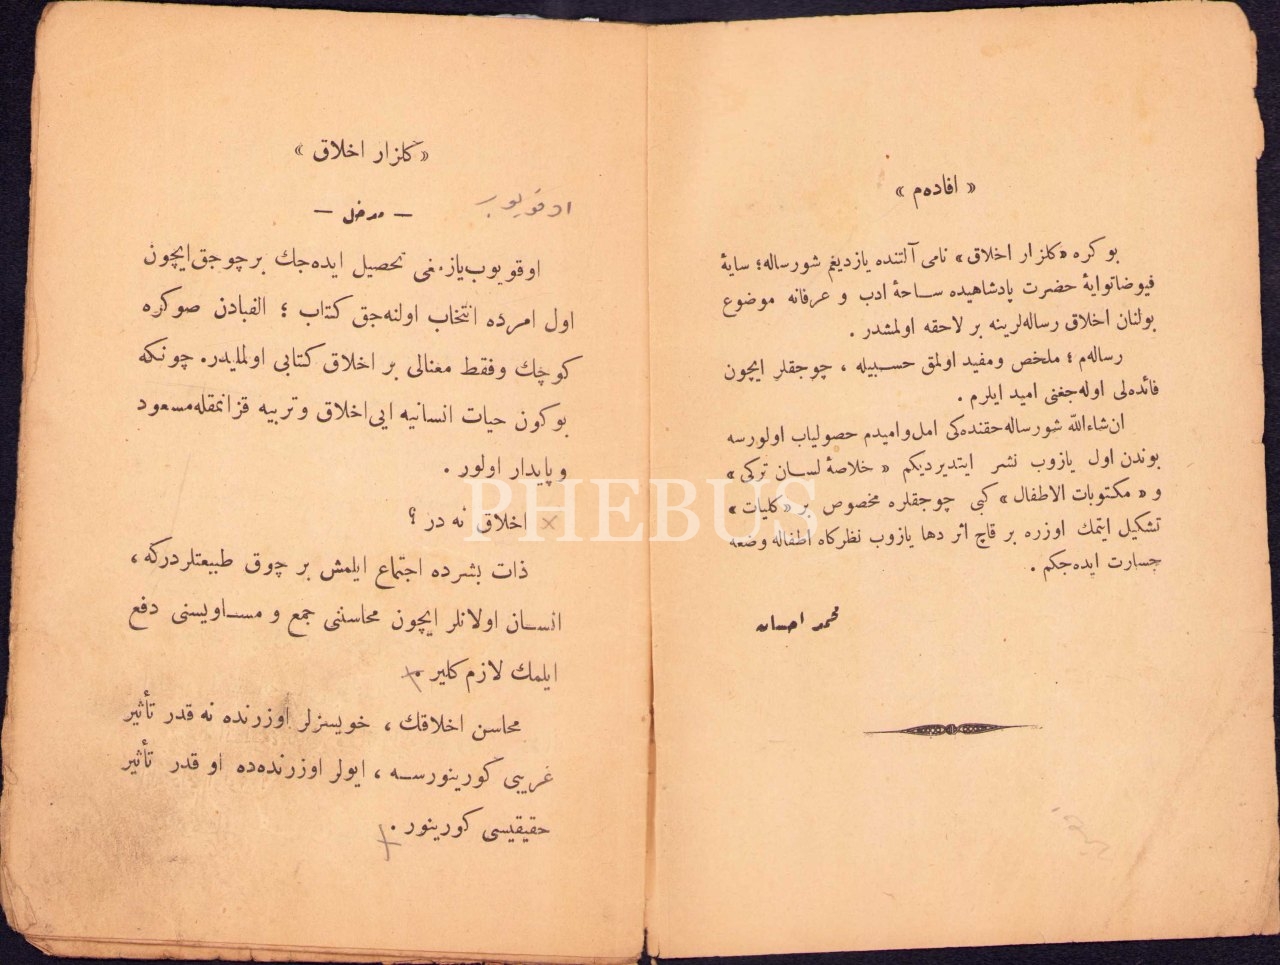 « افاده‌م »
بو کره «کلزار اخلاق» نامی آلتنده یازدیغم شو رساله؛ سایهٔ
فیوضاتوایهٔ حضرت پادشاهیده ساحهٔ ادب و عرفانه موضوع
بولنان اخلاق رساله‌لرینه بر لاحقه اولمشدر .
رساله‌م ؛ ملخص ومفید اولمق حسبیله ، چوجقلر ایچون
فائده‌لی اوله‌جغنی امید ایلرم .
ان‌شاءالله شو رساله حقنده‌کی امل و امیدم حصولیاب اولورسه
بوندن اول یازوب نشر ایتدیردیکم « خلاصهٔ لسان ترکی »
و « مکتوبات الاطفال » کبی چوجقلره مخصوص بر «کلیات»
تشکیل ایتمك اوزره بر قاچ اثر دها یازوب نظرکاه اطفاله وضعه
جسارت ایده‌جکم .
محمد احسان
« کلزار اخلاق »
— مدخل —
اوقویوب
اوقویوب یازمغی تحصیل ایده‌جك بر چوجق ایچون
اول امرده انتخاب اولنه‌جق کتاب ؛ الفبادن صوکره
کوچك وفقط معنالی بر اخلاق کتابی اولملیدر. چونکه
بوکون حیات انسانیه ایی اخلاق و تربیه قزانمقله مسعود
و پایدار اولور .
اخلاق نه در ؟
ذات بشرده اجتماع ایلمش بر چوق طبیعتلردرکه ،
انسان اولانلر ایچون محاسننی جمع و مساویسنی دفع
ایلمك لازم کلیر .
محاسن اخلاقك ، خویسزلر اوزرنده نه قدر تأثیر
غریبی کورینورسه ، ایولر اوزرنده‌ده او قدر تأثیر
حقیقیسی کورینور .
PHEBUS